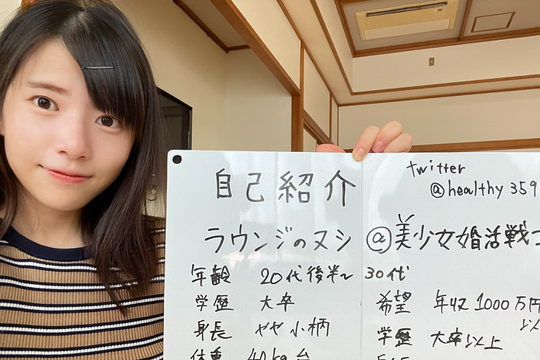 自己紹介
twitter
@healthy359
ラウンジのヌシ@美少女婚活戦
年齢 20代後半〜30代
学歴 大卒
身長 やや小柄
体重 40kg台
希望 年収1000万円
以
学歴 大卒以上